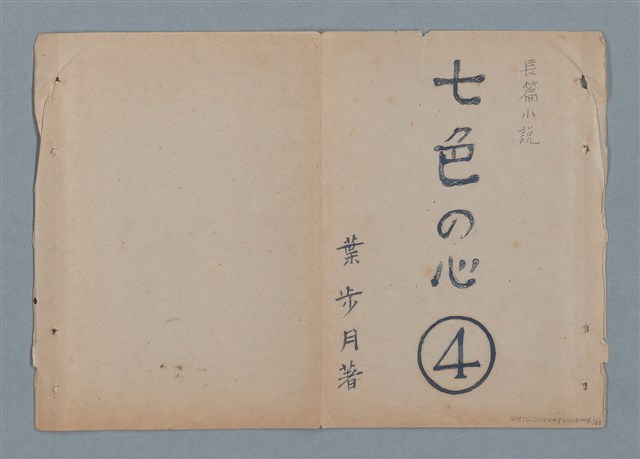 長篇小説
七色の心
④
葉步月著